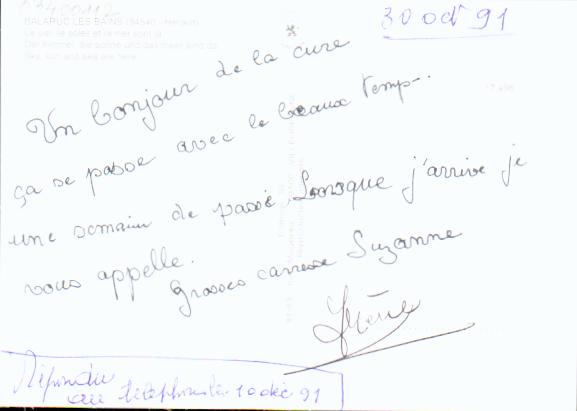 BALARUC LES BAINS (34540 - Hérault)
Le ciel, le soleil et la mer sont là
Der Himmel, die Sonne und das Meer sind da
Sky, sun and sea are here
30 oct 91
Un bonjour de la cure
ça se passe avec le beaux temp-
une semain de passé. Lorsque j'arrive je
vous appelle.
Grosses carresse Suzanne
Répondu
au téléphone le 10 déc 91